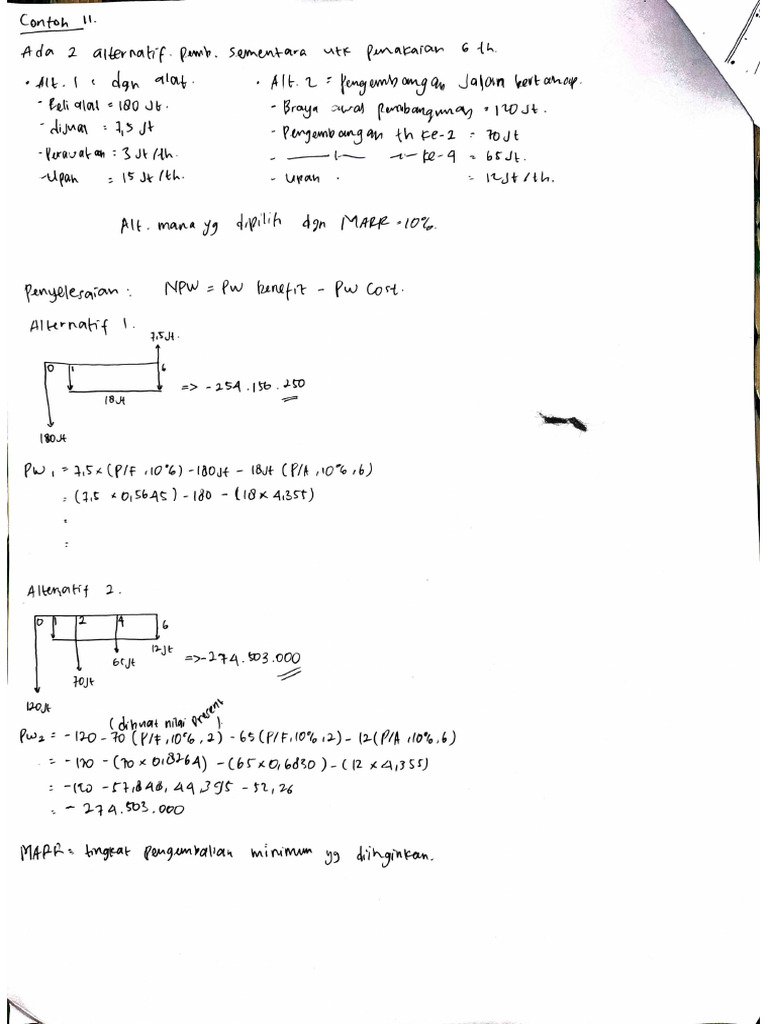 Contoh 11.
Ada 2 alternatif pemb. sementara utk pemakaian 6 th.
• Alt. 1 : dgn alat.
- Beli alat = 180 Jt.
- dijual = 7,5 Jt
- Perawatan : 3 Jt/th.
- Upah = 15 Jt/th.
• Alt. 2 = Pengembangan Jalan bertahap.
- Biaya awal pembangunan = 120 Jt.
- Pengembangan th ke-2 = 70 Jt
- —— 1 — ke-4 = 65 Jt.
- Upah = 12 Jt/th.
Alt. mana yg dipilih dgn MARR = 10%.
Penyelesaian : NPW = PW benefit - PW Cost.
Alternatif 1.
7,5 Jt.
0 1 6
=> - 254.156.250
18 Jt
180 Jt
PW1 = 7,5 x (P/F, 10%) - 180 Jt - 18 Jt (P/A, 10%, 6)
= (7,5 x 0,5645) - 180 - (18 x 4,355)
:
:
Alternatif 2.
0 1 2 4 6
12 Jt
65 Jt
=> - 274.503.000
70 Jt
120 Jt
(dibuat nilai present)
PW2 = -120 - 70 (P/F, 10%, 2) - 65 (P/F, 10%, 2) - 12 (P/A, 10%, 6)
= -120 - (70 x 0,8264) - (65 x 0,6830) - (12 x 4,355)
= -120 - 57,848, 44,395 - 52,26
= - 274.503.000
MARR = tingkat pengembalian minimum yg diinginkan.